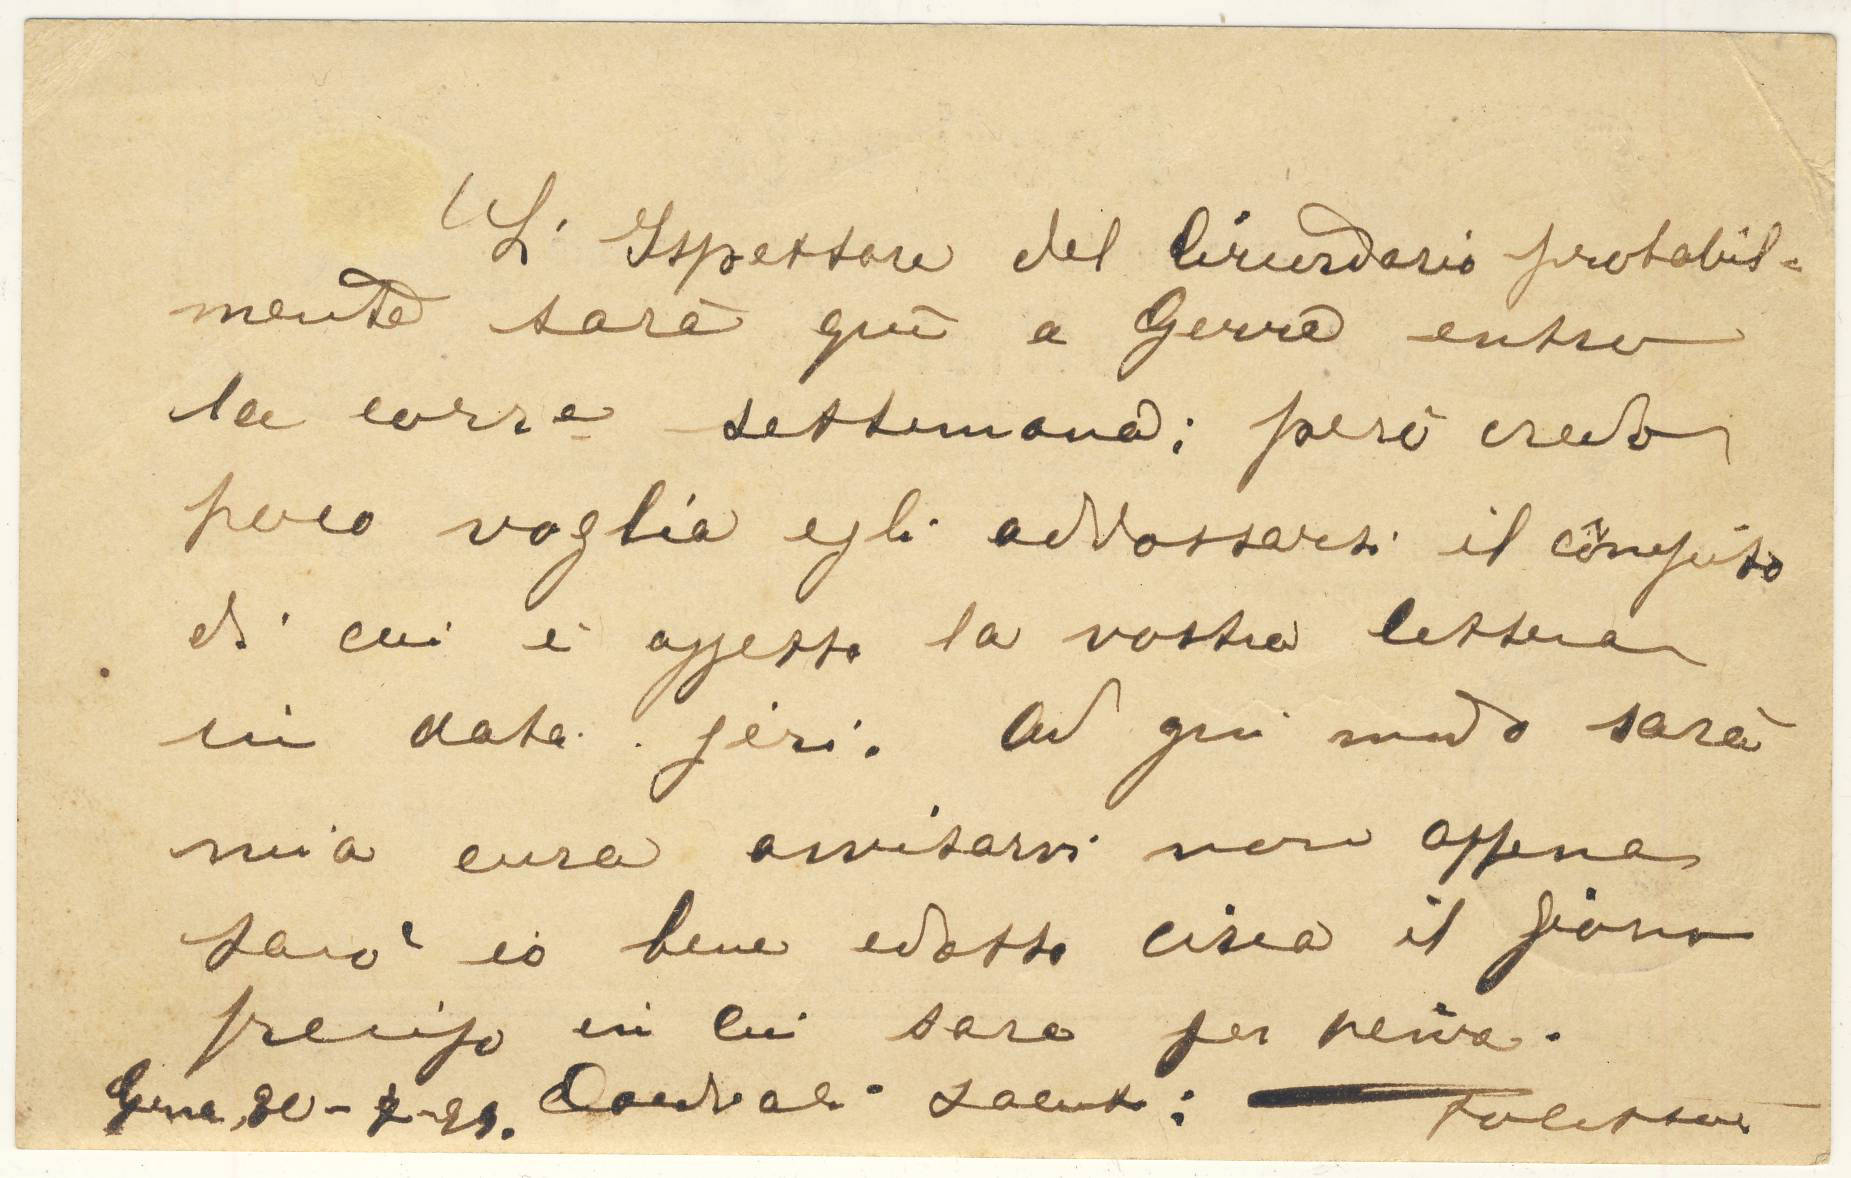 L'Ispettore del Circondario probabil-
mente sarà quì a Gerre entro
la corr.e settimana; però credo
poco voglia egli addossarsi il compito
di cui è oggetto la vostra lettera
in data jeri. Ad gni modo sarà
mia cura avvisarvi non appena
sarò io bene edotto circa il giorno
preciso in cui sarà per venire.
Cordiali saluti;